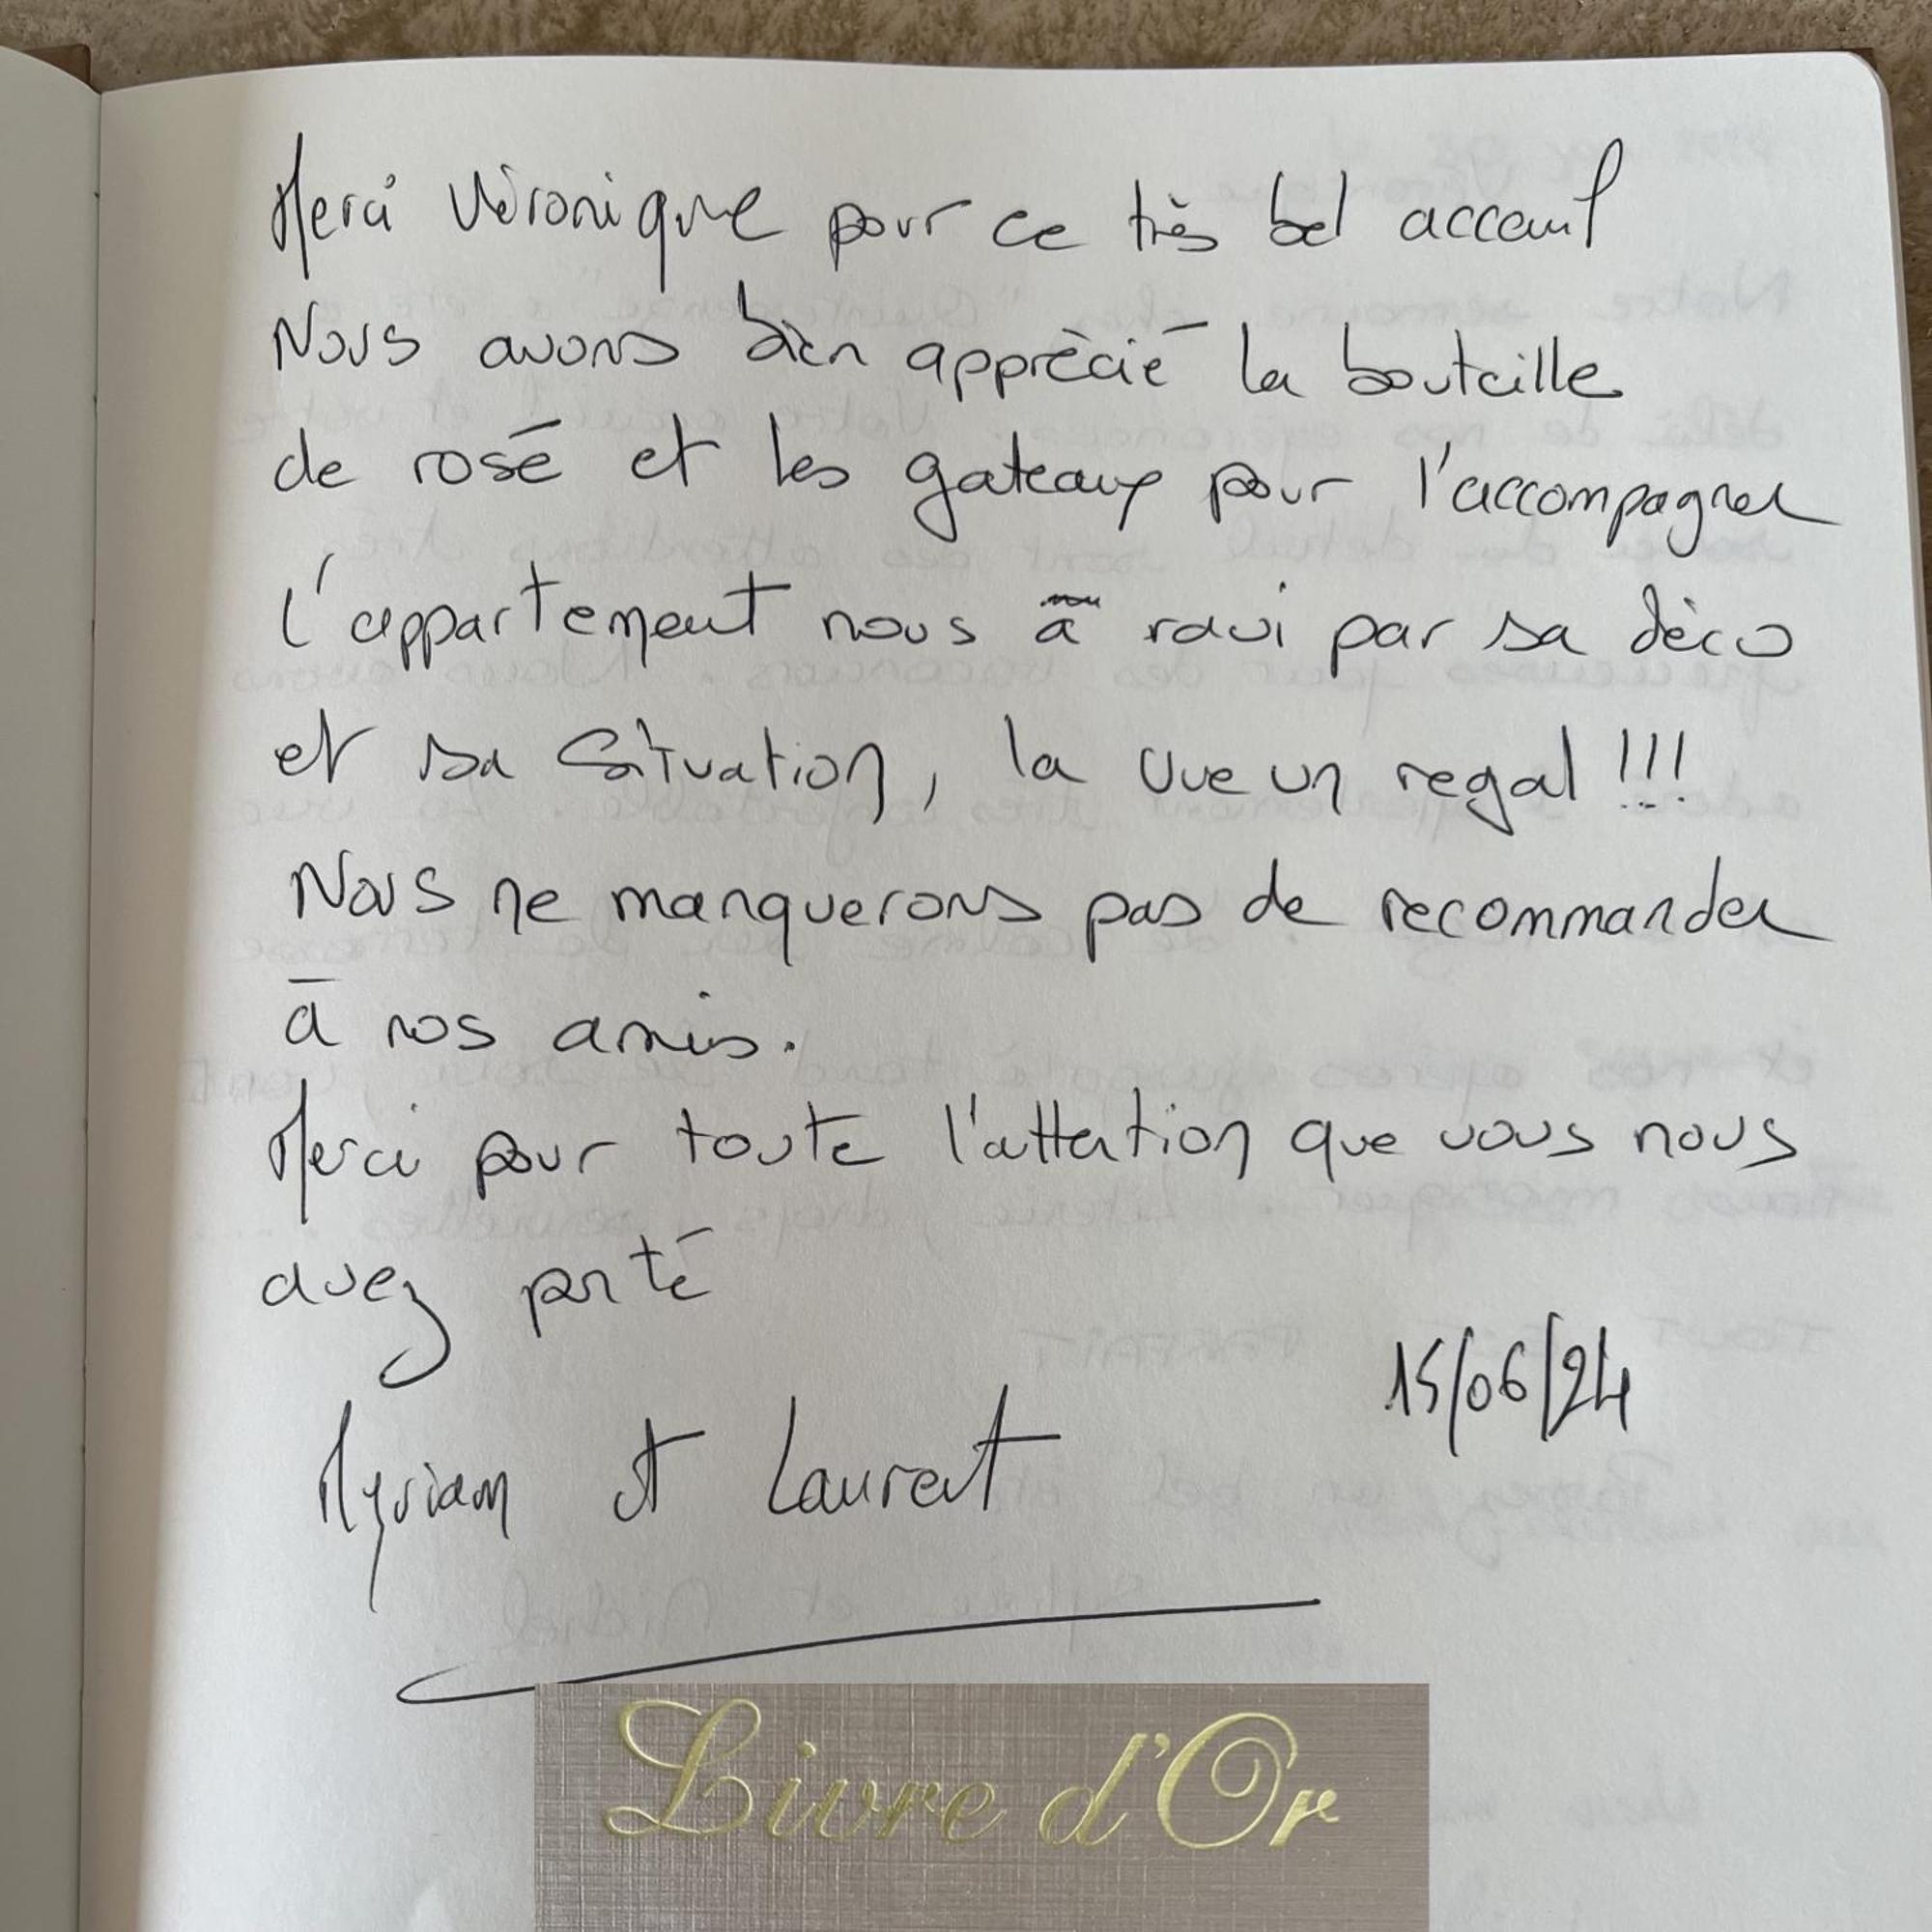 Merci Véronique pour ce très bel acceuil
Nous avons bien apprécié la bouteille
de rosé et les gateaux pour l'accompagner
L'appartement nous a ravi par sa déco
et sa situation, la vue un regal !!!
Nous ne manquerons pas de recommander
à nos amis.
Merci pour toute l'attention que vous nous
avez porté
15/06/24
Myriam et Laurent
Livre d'Or